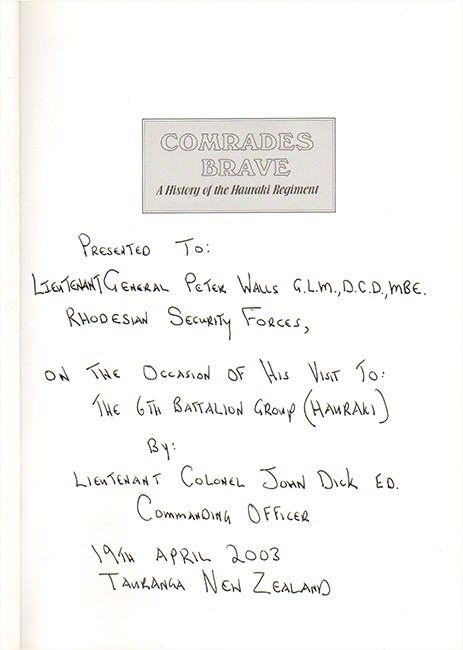 COMRADES
BRAVE
A History of the Hauraki Regiment
PRESENTED TO:
LIEUTENANT GENERAL PETER WALLS G.L.M., D.C.D., MBE.
RHODESIAN SECURITY FORCES,
ON THE OCCASION OF HIS VISIT TO:
THE 6TH BATTALION GROUP (HAURAKI)
BY:
LIEUTENANT COLONEL JOHN DICK ED.
COMMANDING OFFICER
19TH APRIL 2003
TAURANGA NEW ZEALAND